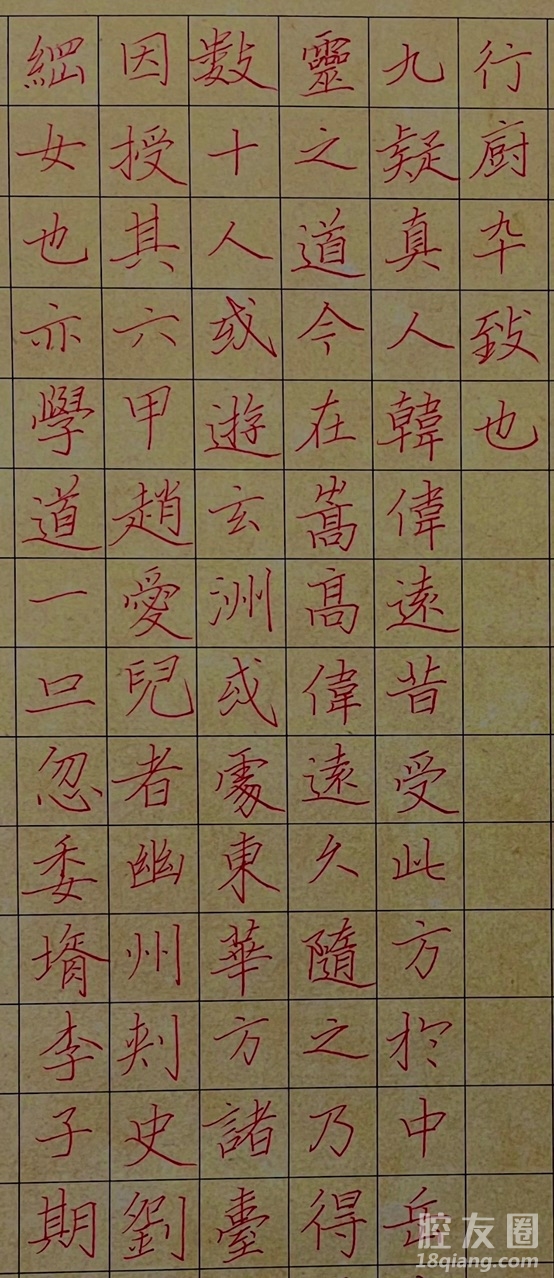 行厨卆致也
九疑真人韓偉遠昔受此方於中岳
靈之道今在嵩高偉遠久隨之乃得
數十人或遊玄洲或處東華方諸臺
因授其六甲趙愛兒者幽州刾史劉
女也亦學道一旦忽委壻李子期
腔友圈
18qiang.com